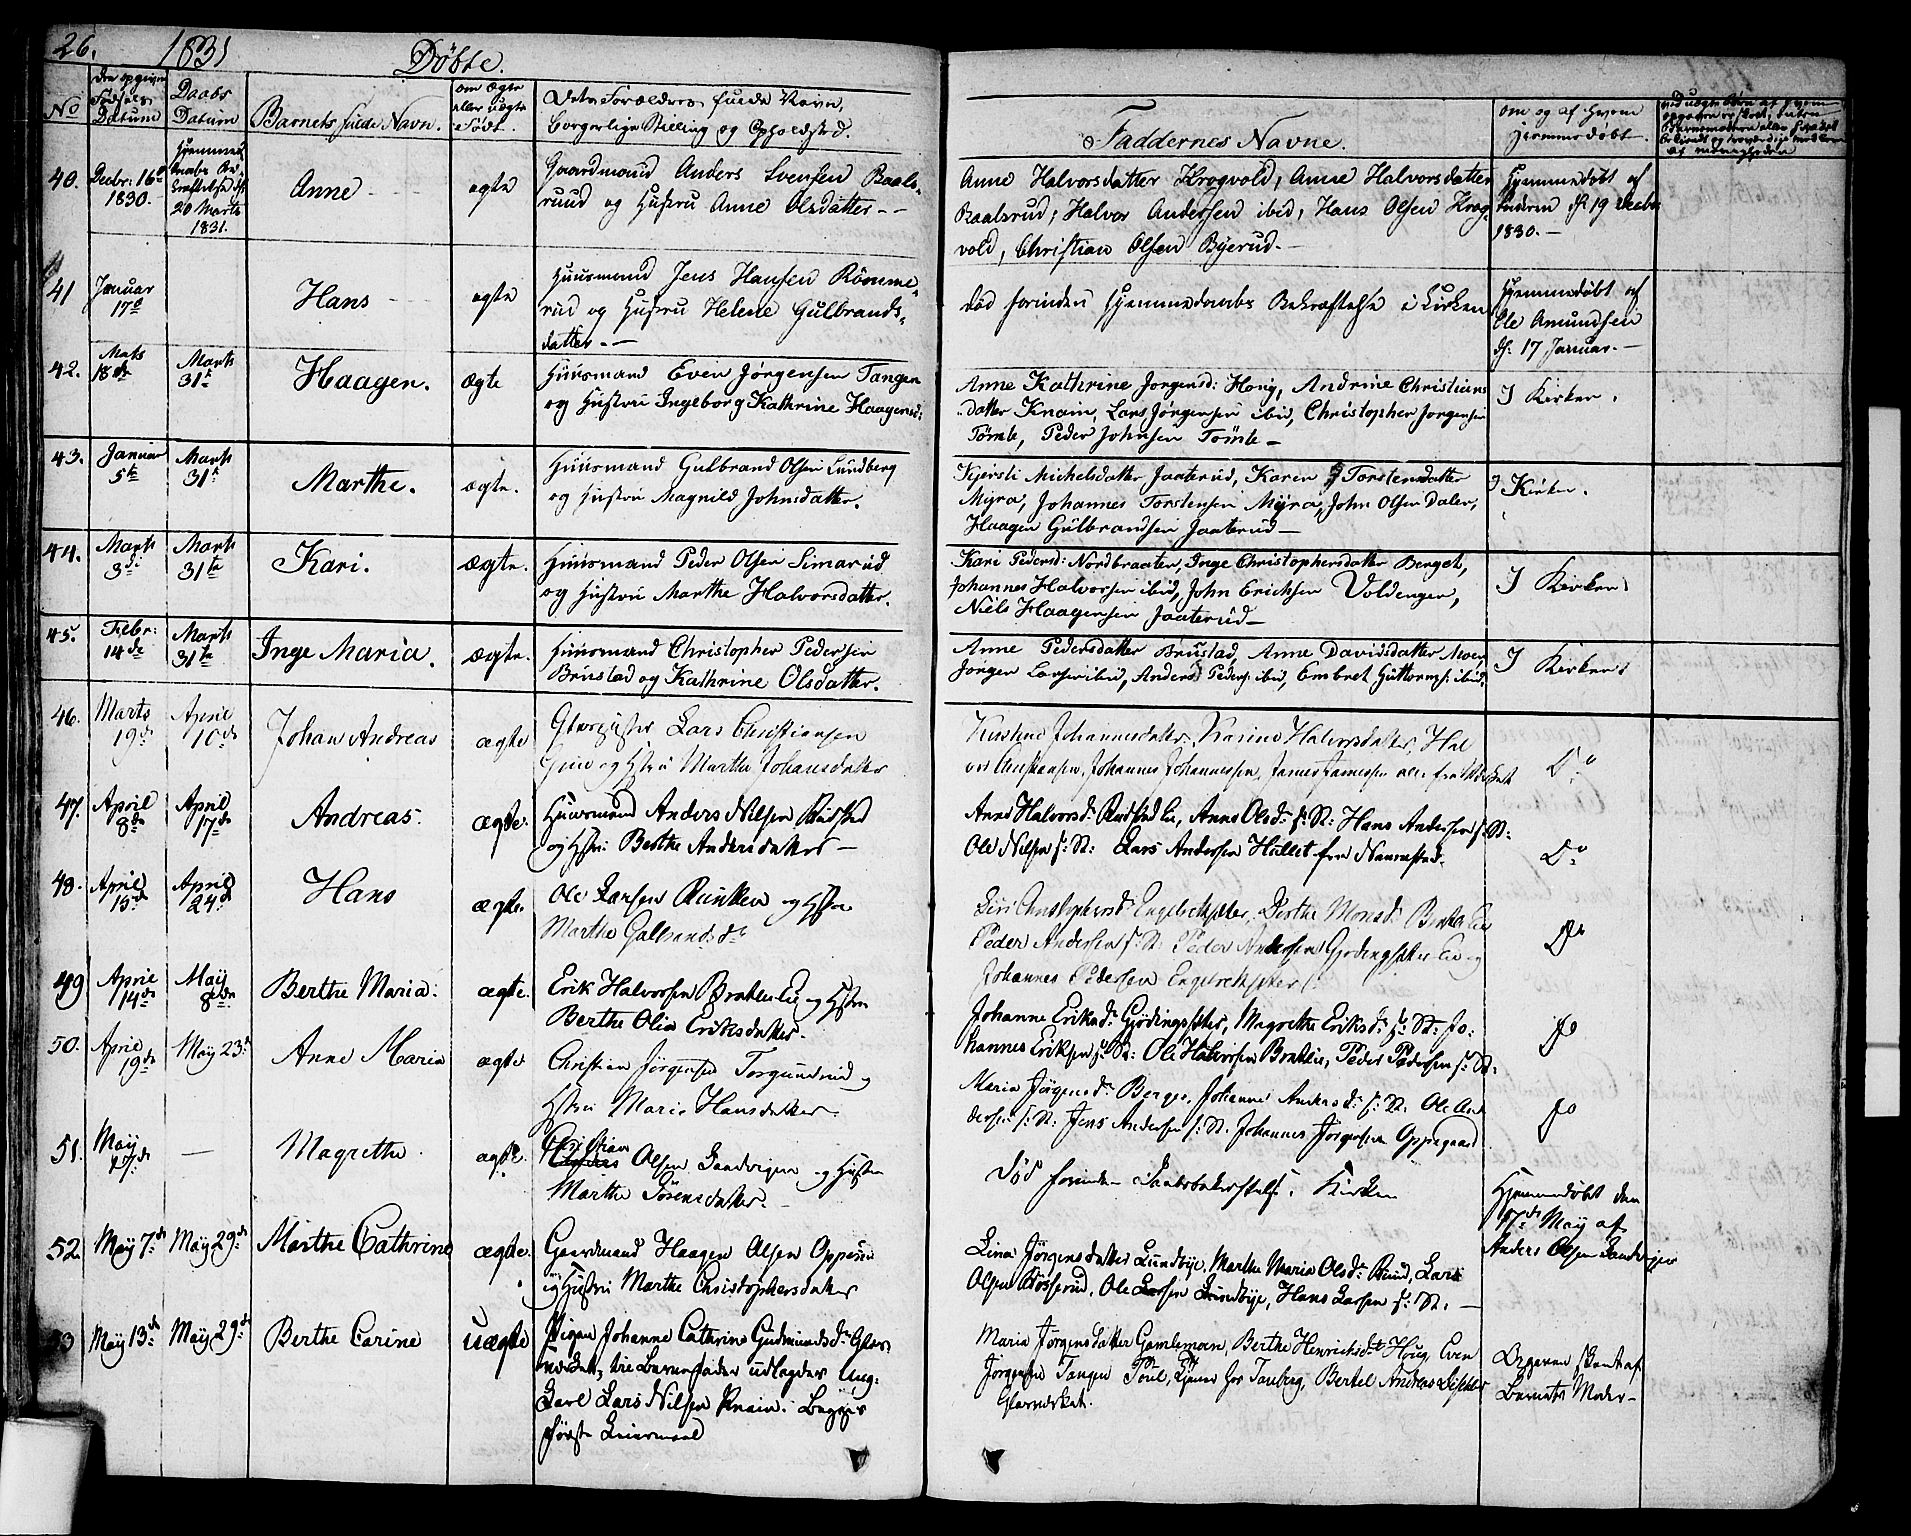 26. 1831 Döbte.
No
den opgivne Fødsels Datum
Daabs Datum
Barnets fulde Navn.
om ægte eller uægte Født.
Dets Forældres fulde Navn, borgerlige Stilling og Opholdsted.
Faddernes Navne.
om og af hvem hjemmedøbt.
40. Decbr: 16de 1830.
Hjemmedaabs Bekræftelse d. 20 Marts 1831.
Anne
ægte
Gaardmand Anders Svensen Raalsruud og Hustru Anne Olsdatter
Anne Halvorsdatter Krogvold, Anne Halvorsdatter
Raalsrud, Halvor Andersen ibid, Hans Olsen Krogvold, Christian Olsen Byerud.
Hjemmedøbt af
d. 19 Decbr 1830.
41 Januar 17de
Hans
ægte
Huusmand Jens Hansen Römmerud og Hustru Helene Gulbrandsdatter
død forinden Hjemmedaabs Bekræftelse i Kirken
Hjemmedøbt af Ole Amundsen d. 17 Januar.
42. Marts 18de
Marts 31te
Haagen.
ægte
Huusmand Even Jörgensen Tangen
og Hustru Ingeborg Kathrine Haagensd:
Anne Kathrine Jorgensd: Houg, Andrine Christiansdatter Knain, Lars Jörgensen ibid, Christopher Jorgensen
Tömte, Peder Johnsen Tömte
I Kirken.
43. Januar 5te
Marts 31te
Marthe.
ægte.
Huusmand Gulbrand Olsen Lundberg
og Hustru Magnild Johnsdatter.
Kjersti Michelsdatter Jaaterud, Karen Torstensdatter
Myra, Johannes Torstensen Myra, John Olsen Dalen,
Haagen Gulbrandsen Jaaterud
I Kirken.
44. Marts 3de
Marts 31te
Kari.
ægte.
Huusmand Peder Olsen Simarud
og Hustru Marthe Halvorsdatter.
Kari Pedersd: Nordbraaten, Inge Christophersdatter Berget,
Johannes Halvorsen ibid, John Erichsen Voldengen,
Niels Haagensen Jaaterud
I Kirken
45. Febr: 14de
Marts 31te
Inge Maria.
ægte.
Huusmand Christopher Pedersen
Brustad og Kathrine Olsdatter.
Anne Pedersdatter Brustad, Anne Davidsdatter Moen,
Jörgen Larsen ibid, Anders Peders: ibid, Embret Guttorms: ibid.
I Kirken
46. Marts 19de
April 10de
Johan Andreas
ægte
Lars Christiansen
og Hstru Marthe Johansdatter
Johannesdatter, Karine Halvorsdatter, Johannes Johannessen,
Do
47. April 8de
April 17de
Andreas.
ægte.
Huusmand Anders Nilsen Rudstad
og Hstr: Berthe Andersdatter
Anne Halvorsdr Rudstad Ei, Anne Olsdr f: St: Hans Andersen f: St:
Ole Nilsen f: St: Lars Andersen Hullet fra
Do
48. April 15de
April 24de
Hans
ægte.
Ole Larsen og Hstru
Marthe Gulbrandsdr
Siri Christophersdr Engebretsæter, Berthe Monsdr
Peder Andersen f: St: Peder Andersen Gjödingsæter
Johannes Pedersen Engebretsæter
Do
49 April 14de
May 8de
Berthe Maria
ægte.
Erik Halvorsen Bratlie Ei og Hstru
Berthe Olia Eriksdatter.
Johanne Eriksdr Gjödingsæter, Magrethe Eriksdr f: St: Johannes Eriksen f: St: Ole Halvorsen Bratlie, Peder Pedersen f: St:
Do
50. April 19de
May 23de
Anne Maria
ægte
Christian Jörgensen Torgunrud og
Hstru Marie Hansdatter
Maria Jörgensdr Berger, Johanne Andersdr f: St. Ole Andersen f: St: Jens Andersen f: St. Johannes Jörgensen Oppegaard
Do
51. May 17de
—
Magrethe
ægte.
Christian Olsen Sandvigen og Hstru
Marthe Sörensdatter.
Död forinden Daabsbekræftelse i Kirken
Hjemmedøbt den 17de May af Anders Olsen Sandvigen
52. May 7de
May 29de
Marthe Cathrine
ægte.
Gaardmand Haagen Olsen Oppsun
og Hustru Marthe Christophersdatter
Lina Jörgensdatter Lundbye, Marthe Maria Olsdr Ruud, Lars
Olsen Bösserud, Ole Larsen Lundbye, Hans Larsen f: St.
53 May 13de
May 29de
Berthe Carine
uægte
Pigen Johanne Cathrine Gudmundsdr Glasværket, til Barnefader udlagdes Ung:
Karl Lars Nilsen Knain. Begges
første Leiermaal
Maria Jörgensdatter Gamlemoen, Berthe Henrichsdr Houg, Even
Jörgensen Tangen, Poul, tjener hos Tanberg, Bertel Andreas
Glasværket.
Opgaven skeet af Barnets Moder